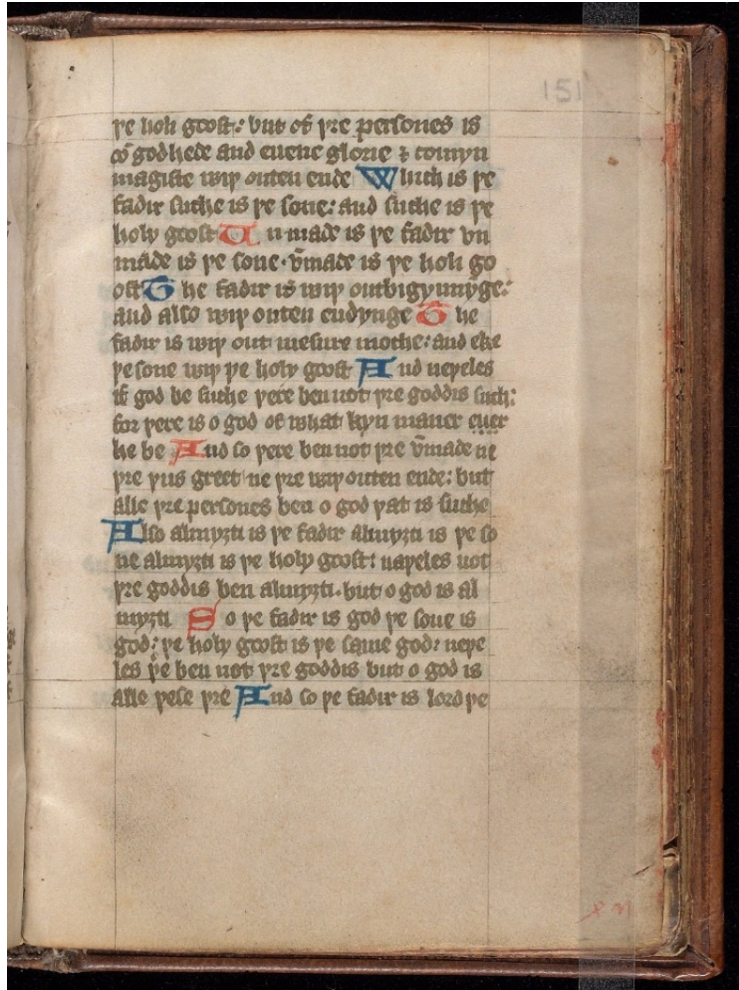 151
þe holi goost: but of þre persones is
oo godhede and euene glorie ⁊ comyn
mageste wiþ outen ende Which is þe
fadir suche is þe sone: and suche is þe
holy goost Un made is þe fadir vn
made is þe sone· vnmade is þe holi go
ost The fadir is wiþ out bigynnyge:
and also wiþ outen endynge The
fadir is wiþ out mesure moche: and eke
þe sone wiþ þe holy goost And neþeles
if god be suche þere ben not þre goddis such:
for þere is o god of what kyn maner euer
he be And so þere ben not þre v̄made ne
þre þus greet ne þre wiþ outen ende: but
alle þre persones ben o god þat is suche
Also almyȝti is þe fadir almyȝti is þe so
ne almyȝti is þe holy goost: naþeles not
þre goddis ben almyȝti· but o god is al
myȝti So þe fadir is god þe sone is
god: þe holy goost is þe same god: neþe
les þe ben not þre goddis but o god is
alle þese þre And so þe fadir is lord þe